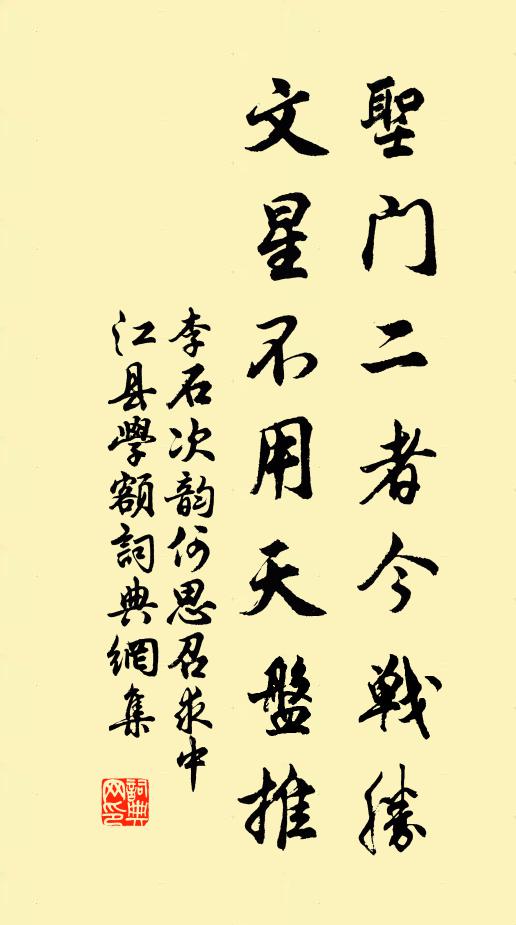 聖门二者今戦勝
文星不用天盤推
李石次韵何思召求中
江县學額詞典網集
詞典网印